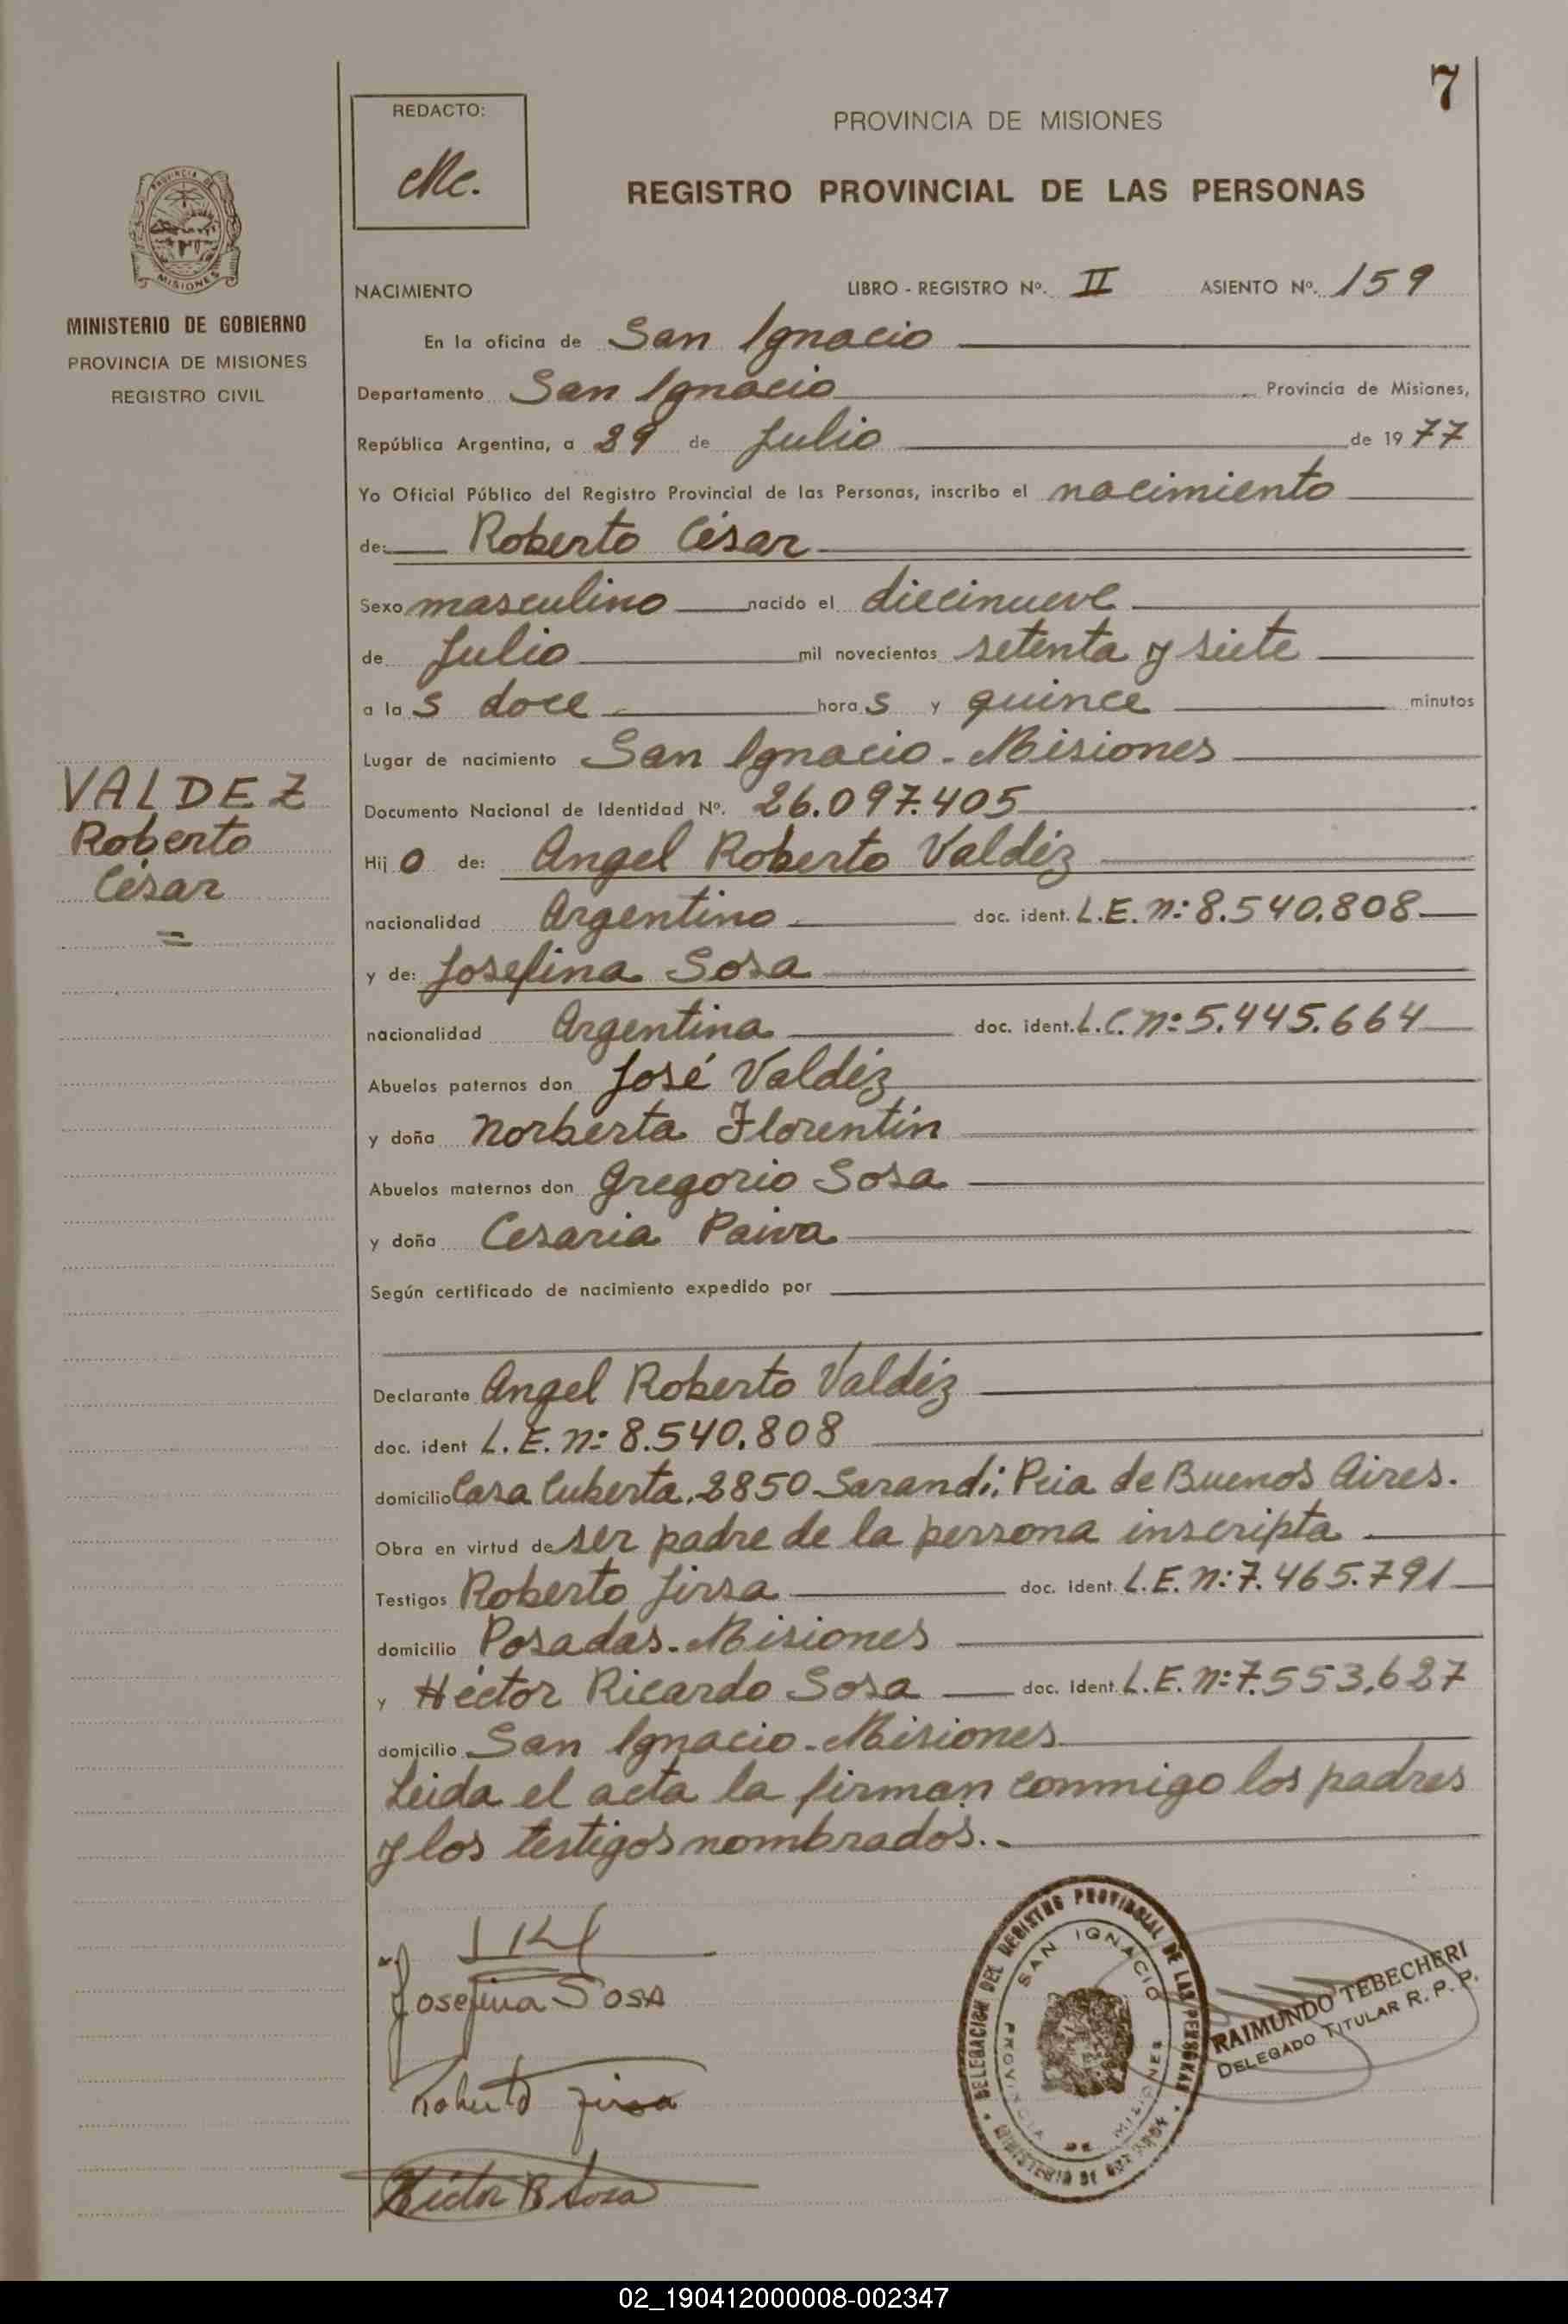 7
REDACTO:
PROVINCIA DE MISIONES
REGISTRO PROVINCIAL DE LAS PERSONAS
MISIONES
MINISTERIO DE GOBIERNO
PROVINCIA DE MISIONES
REGISTRO CIVIL
NACIMIENTO LIBRO - REGISTRO Nº. II ASIENTO Nº. 159
En la oficina de San Ignacio
Departamento San Ignacio Provincia de Misiones,
República Argentina, a 29 de Julio de 1977
Yo Oficial Público del Registro Provincial de las Personas, inscribo el nacimiento
de: Roberto César
Sexo masculino nacido el diecinueve
de Julio mil novecientos setenta y siete
a las doce horas y quince minutos
Lugar de nacimiento San Ignacio - Misiones
VALDEZ
Roberto
César
Documento Nacional de Identidad Nº. 26.097.405
Hijo de: Angel Roberto Valdéz
nacionalidad Argentino doc. ident. L.E. Nº: 8.540.808
y de: Josefina Sosa
nacionalidad Argentina doc. ident. L.C. Nº: 5.445.664
Abuelos paternos don José Valdéz
y doña Norberta Florentín
Abuelos maternos don Gregorio Sosa
y doña Cesaria Paiva
Según certificado de nacimiento expedido por
Declarante Angel Roberto Valdéz
doc. ident L.E. Nº: 8.540.808
domicilio Casa Cuberta. 2850 Sarandí; Pcia de Buenos Aires.
Obra en virtud de ser padre de la persona inscripta
Testigos Roberto Jirsa doc. ident. L.E. Nº: 7.465.791
domicilio Posadas - Misiones
y Héctor Ricardo Sosa doc. Ident. L.E. Nº: 7.553.627
domicilio San Ignacio - Misiones
Leida el acta la firman conmigo los padres
y los testigos nombrados. -
Josefina SOSA
Roberto Jirsa
Héctor R Sosa
DELEGACION DEL REGISTRO PROVINCIAL DE LAS PERSONAS
MINISTERIO DE GOBIERNO
SAN IGNACIO
PROVINCIA DE MISIONES
RAIMUNDO TEBECHERI
DELEGADO TITULAR R. P. P.
02_190412000008-002347